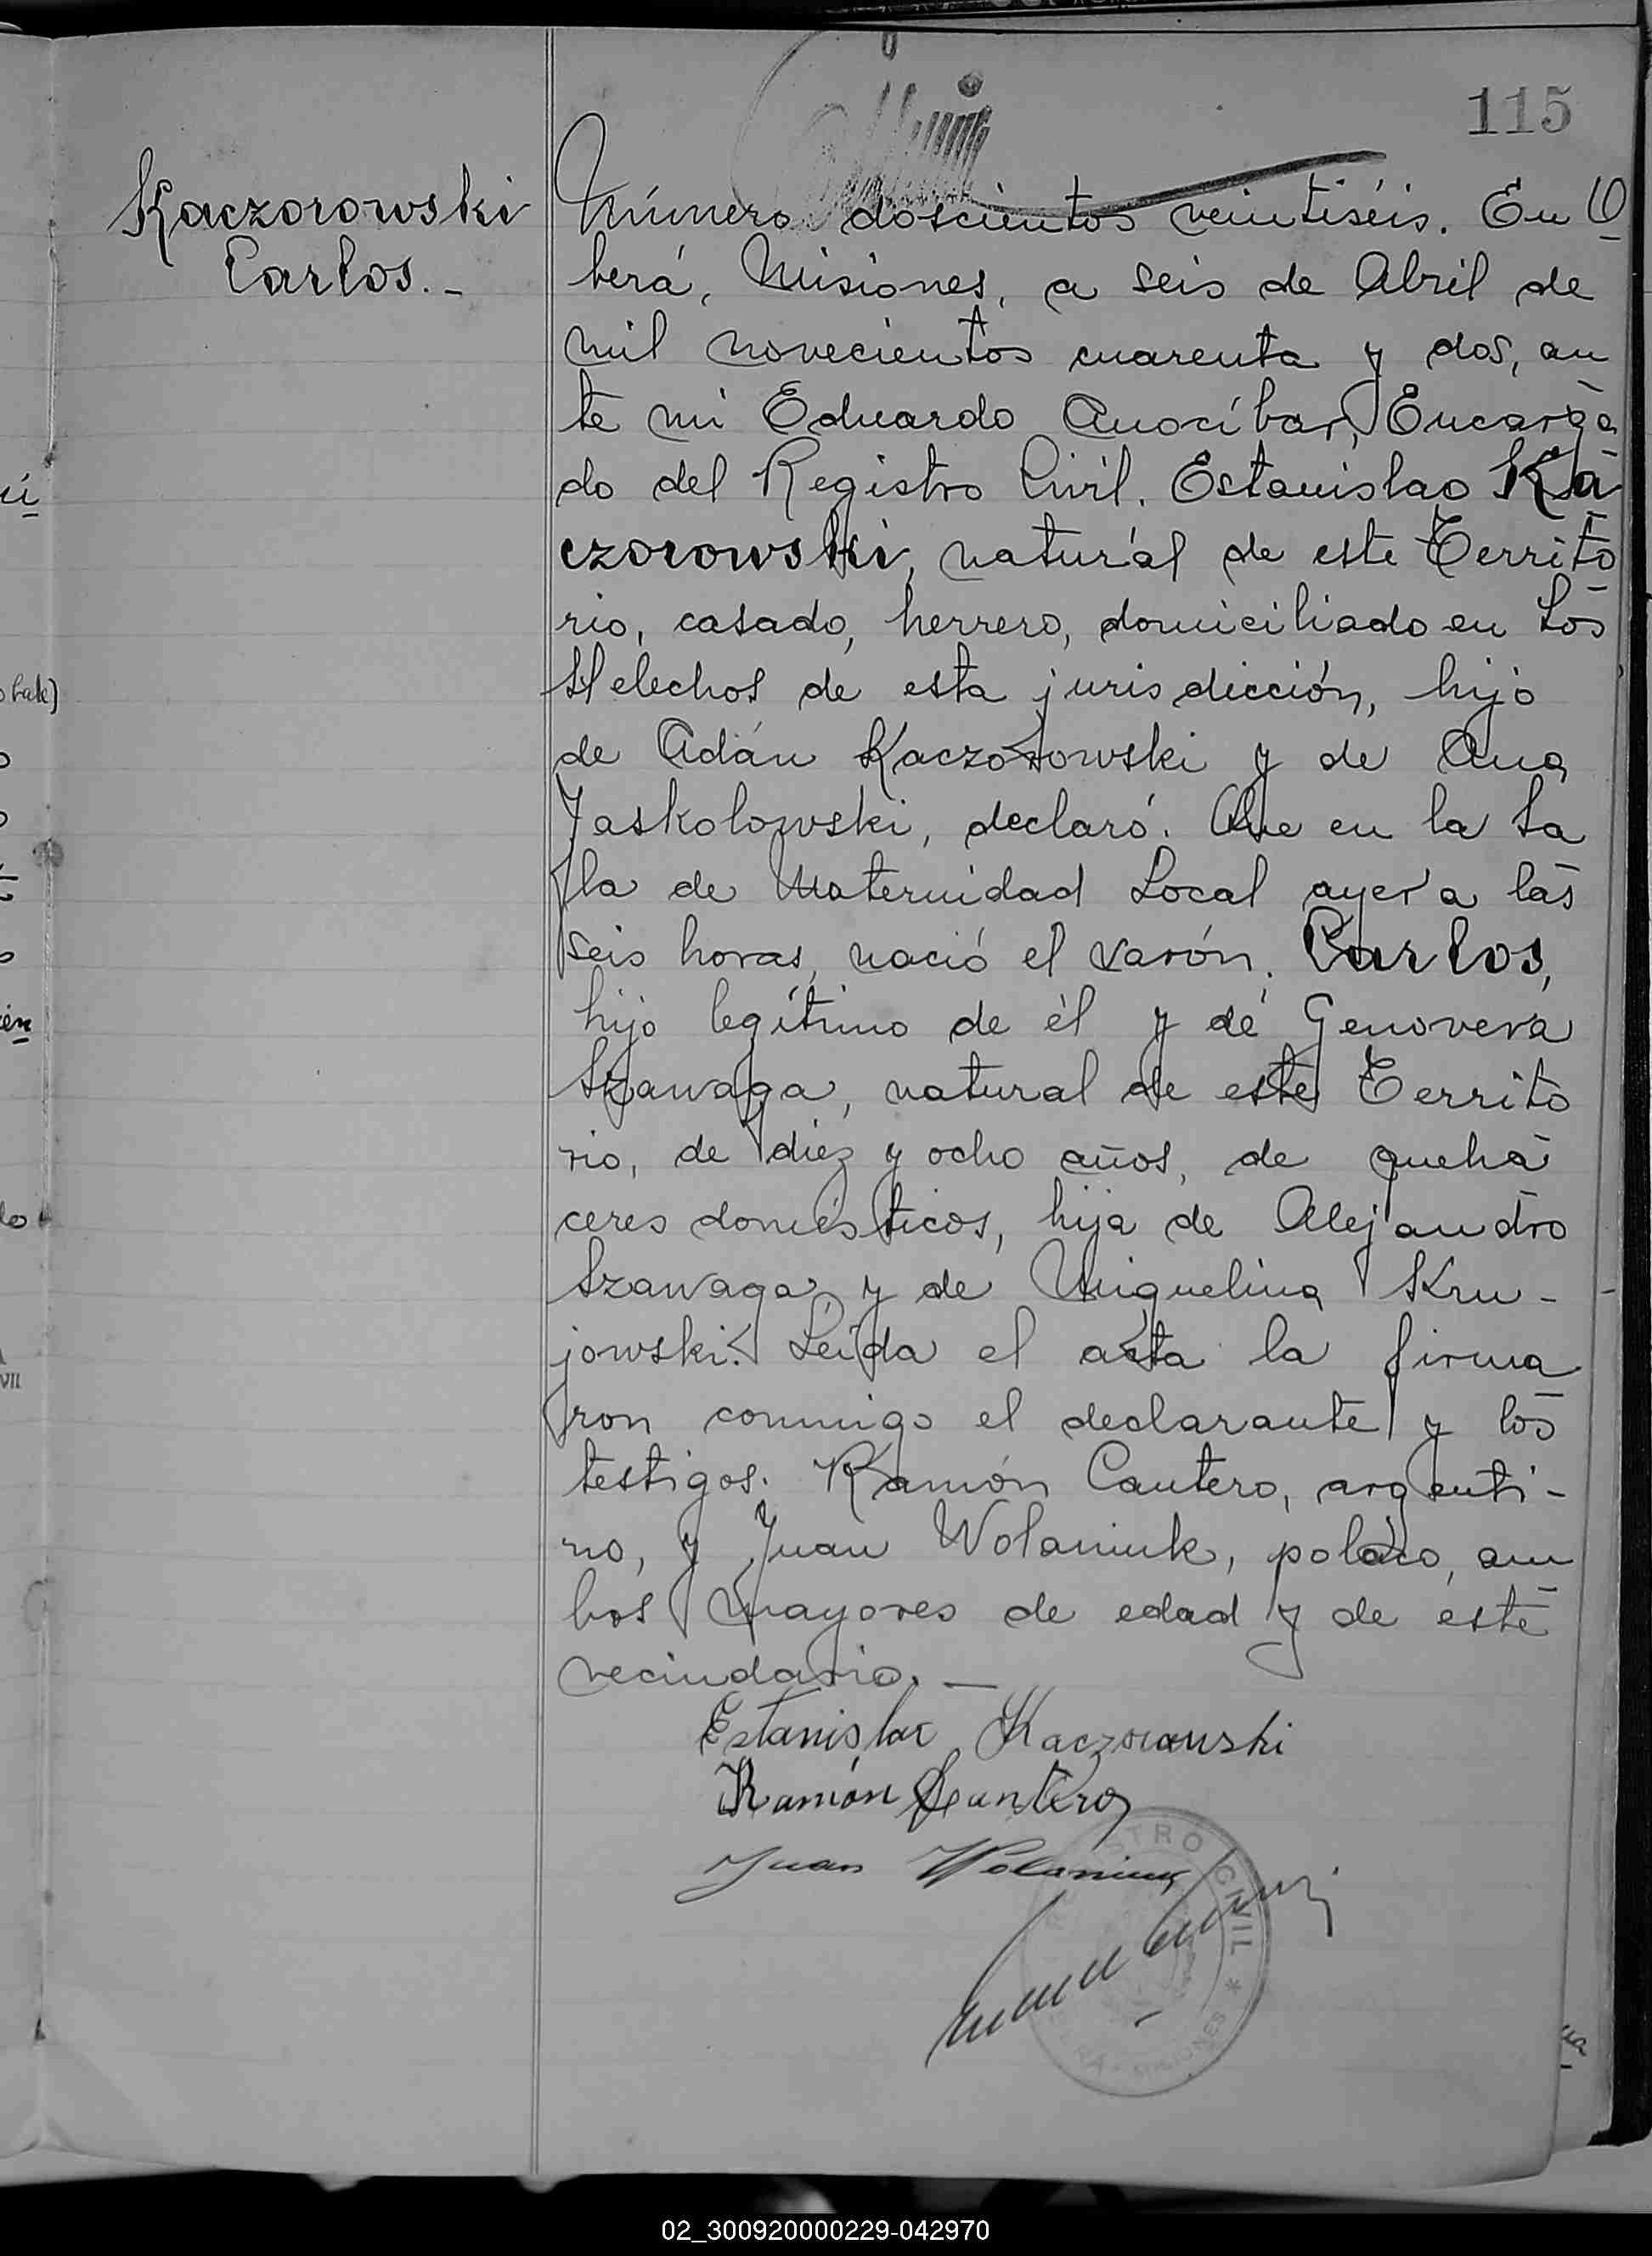 115
Kaczorowski
Carlos.-
Número doscientos veintiséis. En O
berá, Misiones, a seis de Abril de
mil novecientos cuarenta y dos, an
te mi Eduardo Anocíbar, Encarga
do del Registro Civil. Estanislao Ka
czorowski, natural de este Territo
rio, casado, herrero, domiciliado en Los
Helechos de esta jurisdicción, hijo
de Adán Kaczorowski y de Ana
Jaskolowski, declaró: Que en la Sa
la de Maternidad Local ayer a las
seis horas, nació el varón: Carlos,
hijo legítimo de él y de Genoveva
Szawaga, natural de este Territo
rio, de diez y ocho años, de queha
ceres domésticos, hija de Alejandro
Szawaga y de Miguelina Kru-
jowski. Leída el acta la firma
ron conmigo el declarante y los
testigos: Ramón Cantero, argenti-
no, y Juan Wolaniuk, polaco, am
bos mayores de edad y de este
vecindario.—
Estanislao Kaczorowski
Ramón Cantero
Juan Wolaniuk
CIVIL * MISIONES
ú
lo
VII
02_300920000229-042970